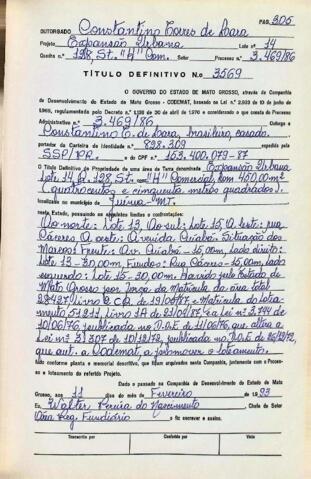 PÁG. 305
OUTORGADO Constantino Torres de Lara
Projeto Expansão Urbana Lote nº 14
Quadra nº 128, St. "H" Com. Setor Processo 3.469/86
TÍTULO DEFINITIVO N.o 3569
O GOVERNO DO ESTADO DE MATO GROSSO, através da Companhia
de Desenvolvimento do Estado de Mato Grosso - CODEMAT, baseado na Lei n.º 2.933 de 10 de junho de
1969, regulamentada pelo Decreto n.º de 30 de abril de 1970 e considerando o que consta do Processo
Administrativo n.º 3.469/86 Outorga a
Constantino T. de Lara, brasileiro, casado.
portador da Carteira de Identidade n.º 828.309 expedida pela
SSP/PR. e do CPF n.º 153.400.079-87
O Título Definitivo de Propriedade de uma área de Terra denominada Expansão Urbana
Lote 14, Q. 128 St. "H" Comercial com 450,00m²
(quatrocentos e cinquenta metros quadrados).
localizada no município de Juína-MT.
neste Estado, possuindo os seguintes limites e confrontações:
Ao norte: Lote 13, Ao sul: Lote 15, A leste: rua
Cáceres, A oeste: Avenida Cuiabá. Situação dos
Marcos: Frente: Av. Cuiabá - 15,00m, Lado direito:
Lote 13 - 30,00m, Fundos: Rua Cáceres - 15,00m, lado
esquerdo: Lote 15 - 30,00m. Havido pelo Estado de
Mato Grosso por força da Matrícula da área total
28427, livro 2 de 19/05/87, e Matrícula do lotea-
mento 51811, livro de 21/04/87, e a Lei nº 3.744 de
10/06/76, publicada no D.O.E de 11/06/76, que altera a
Lei nº 3.307 de 10/12/72, publicada no D.O.E de
que aut. a Codemat, a promover o loteamento.
tudo conforme planta e memorial descritivo, que ficam arquivados nesta Companhia, juntamente com o Proces-
so e loteamento do referido Projeto.
Dado e passado na Companhia de Desenvolvimento do Estado de Mato
Grosso, aos 11 dias do mês de Fevereiro de 1.993
Eu, Walter Pereira do Nascimento, Chefe do Setor
Reg. Fundiário o fiz escrever e assino.
Transcrito por Conferido por Visto